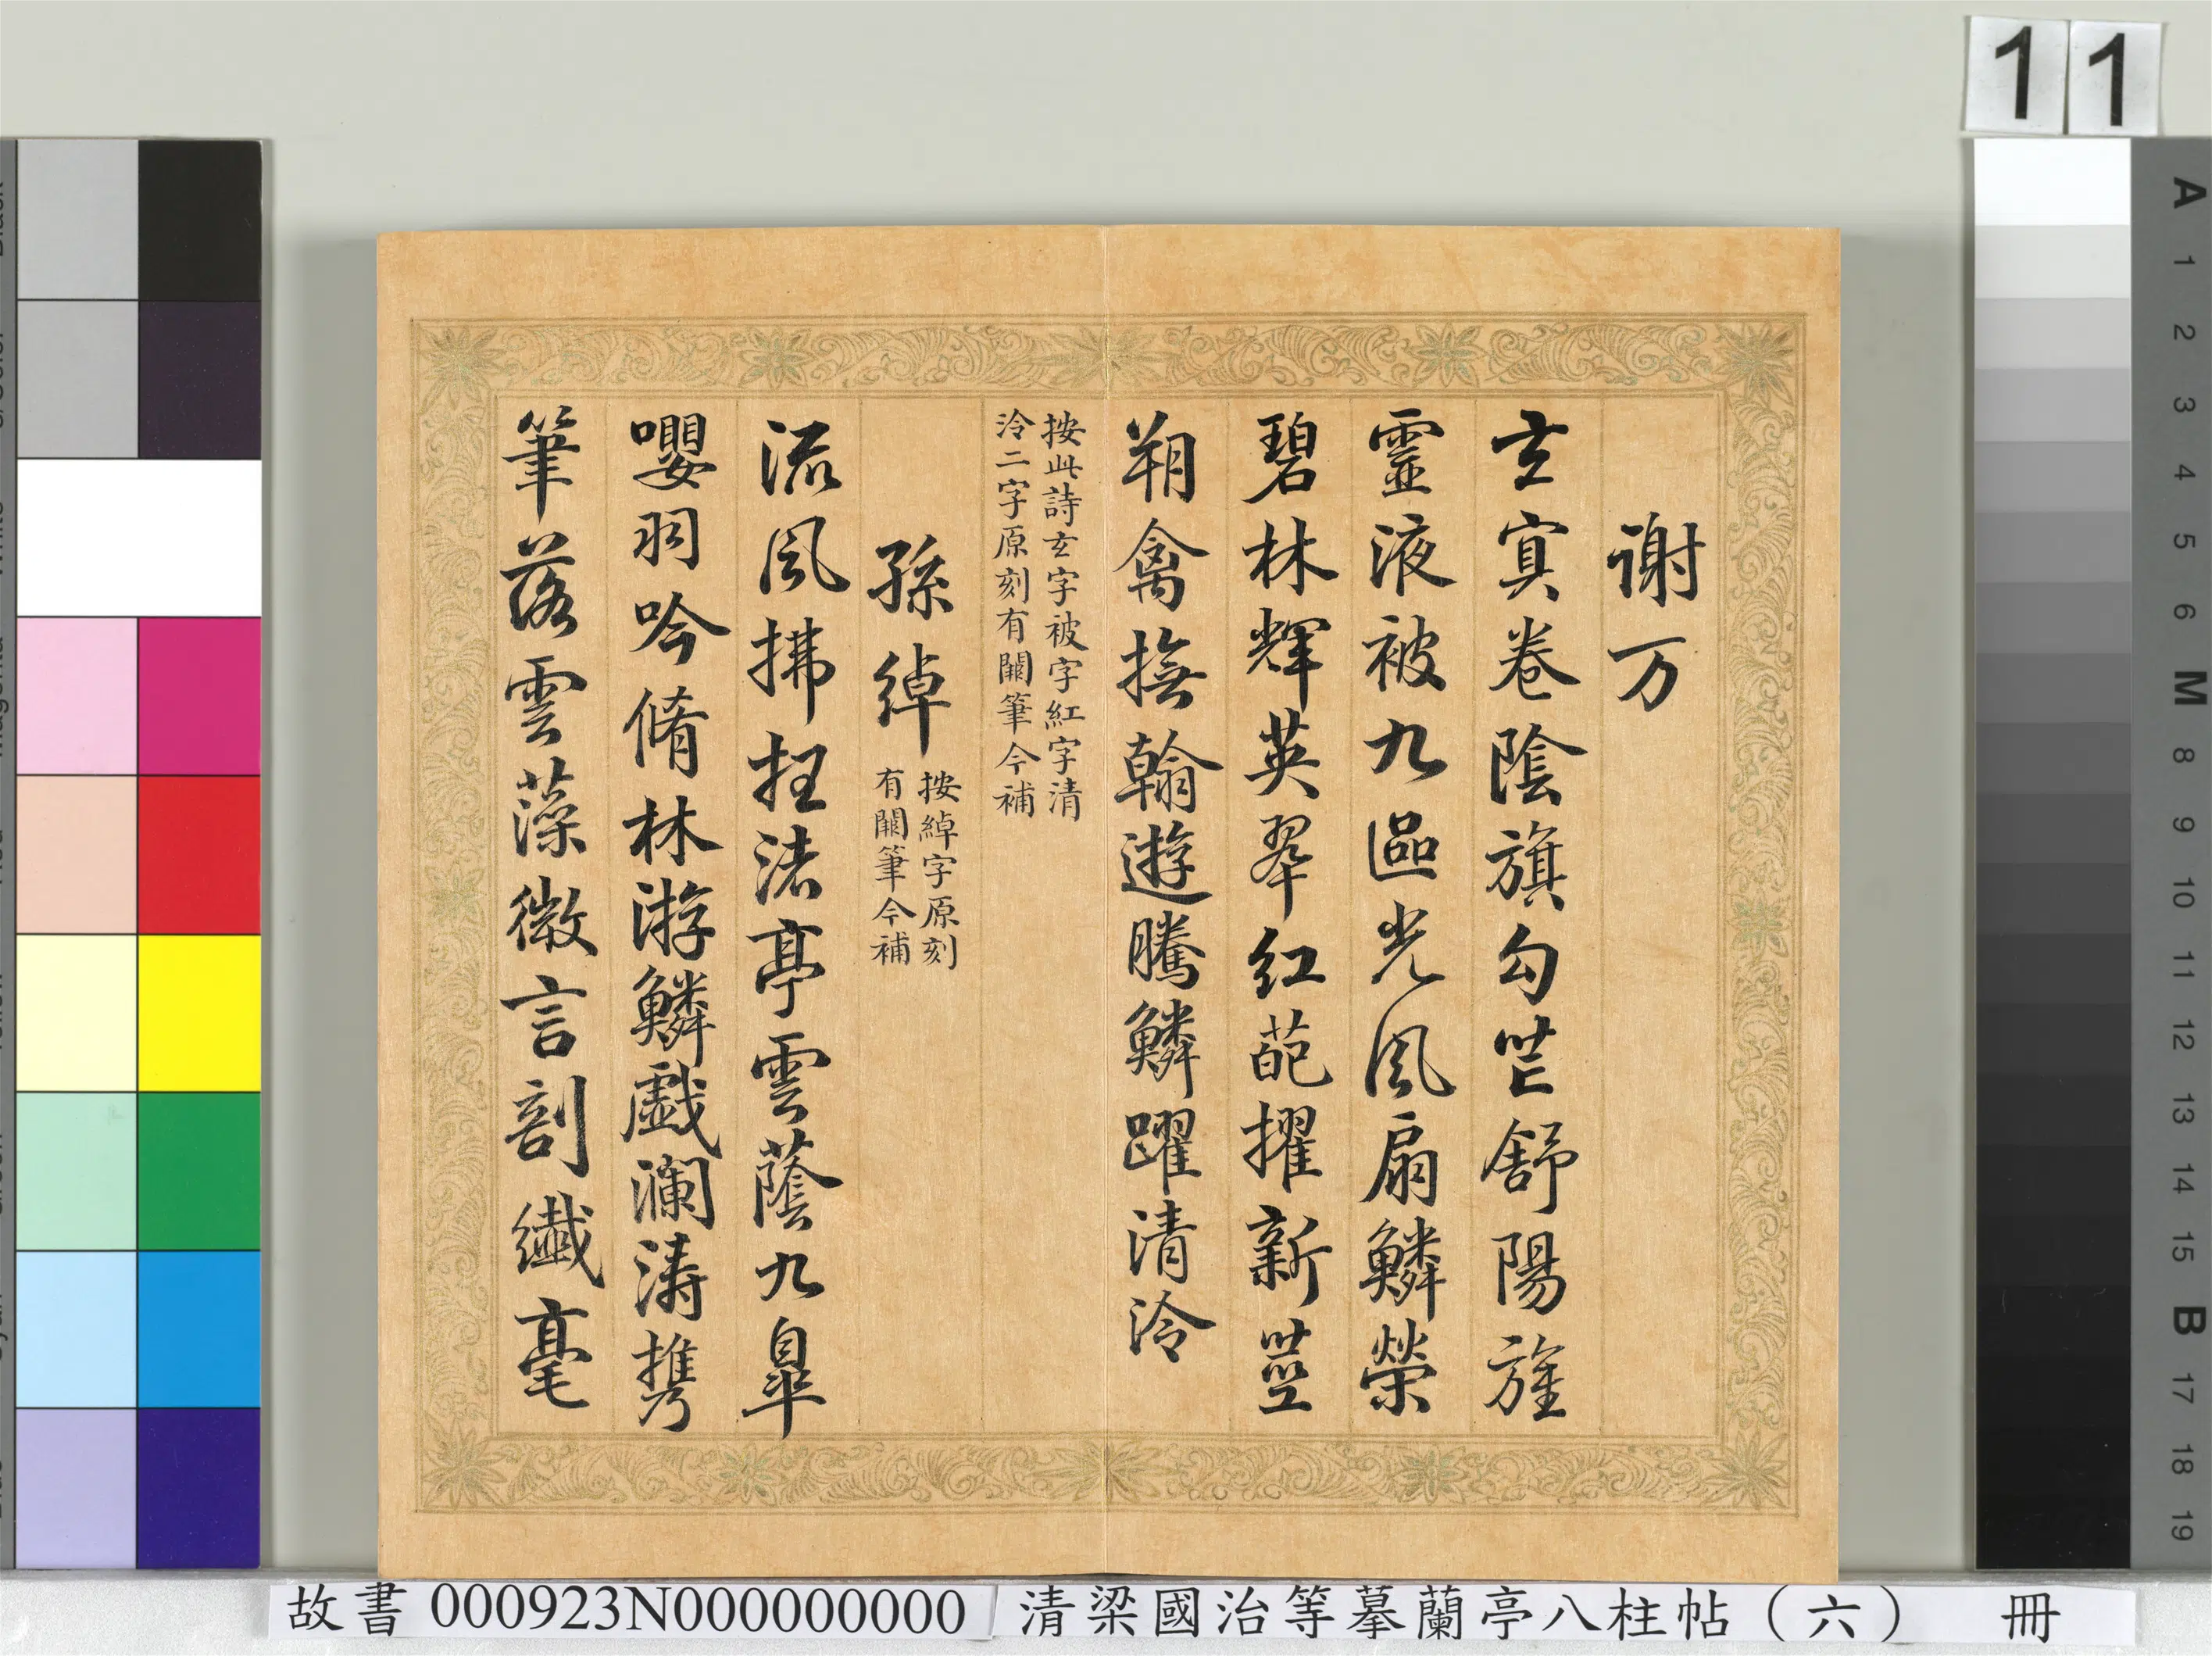 11
謝万
玄冥卷陰旗勾芒舒陽旌
靈液被九區光風扇鱗榮
碧林輝英翠紅葩擢新莖
翔禽撫翰遊騰鱗躍清泠
按此詩玄字被字紅字清
泠二字原刻有闕筆今補
孫綽
按綽字原刻
有闕筆今補
流風拂枉渚亭雲蔭九皐
嚶羽吟脩林游鱗戲瀾濤攜
筆落雲藻微言剖纖毫
A 1 2 3 4 5 6 M 8 9 10 11 12 13 14 15 B 17 18 19
故書 000923N000000000 清梁國治等摹蘭亭八柱帖（六） 冊